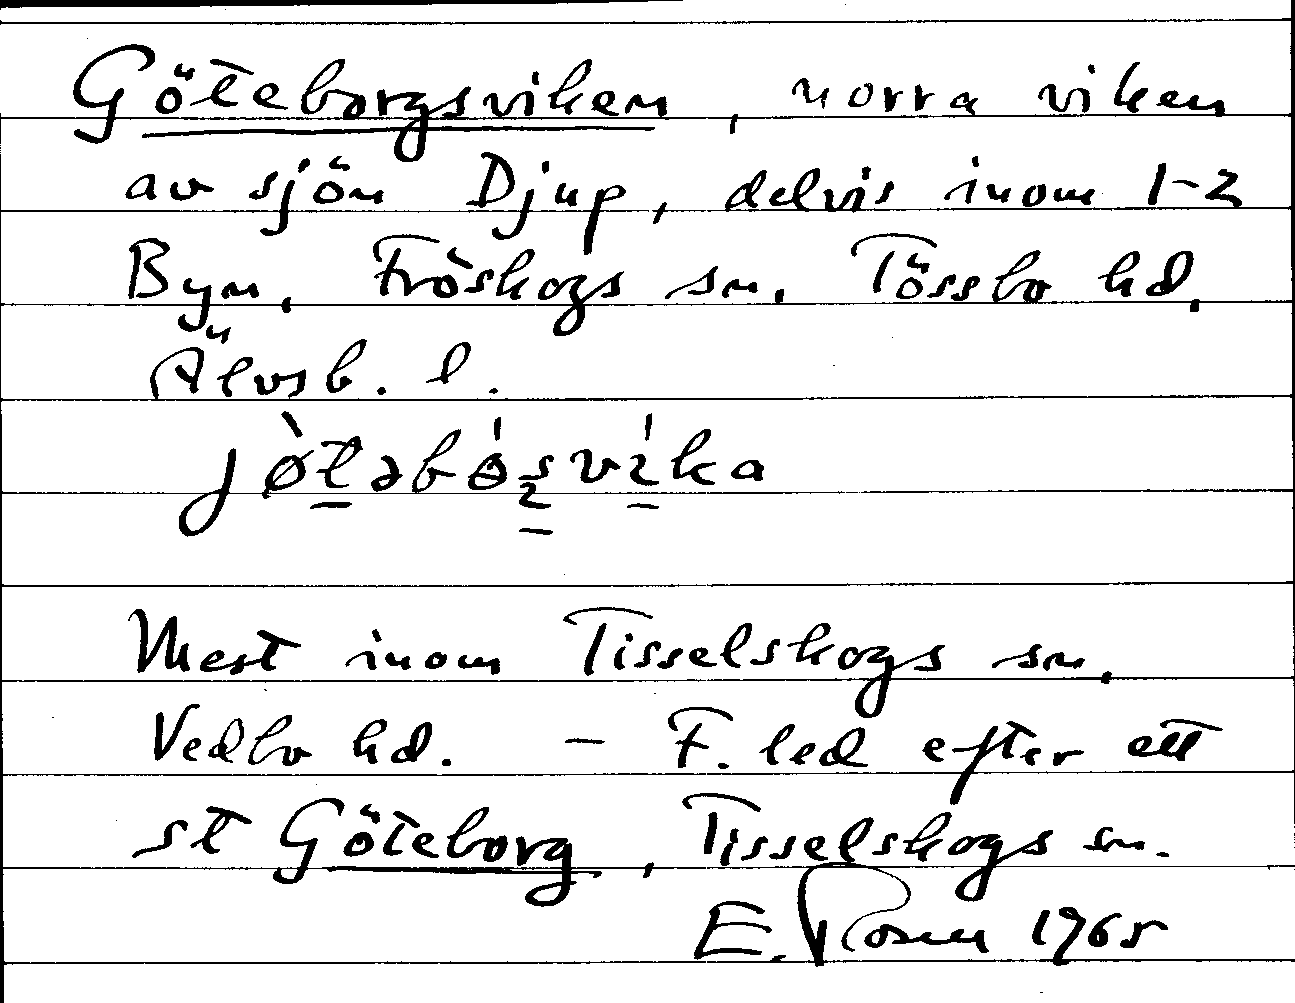 Göteborgsviken, norra viken
av sjön Djup, delvis inom 1-2
Byn, Fröskogs sn. Tössbo hd.
Älvsb. l.
jø̀təbósvíka
Mest inom Tisselskogs sn.
Vedbo hd. – F. led efter ett
st Göteborg, Tisselskogs sn.
E. Rosen 1965